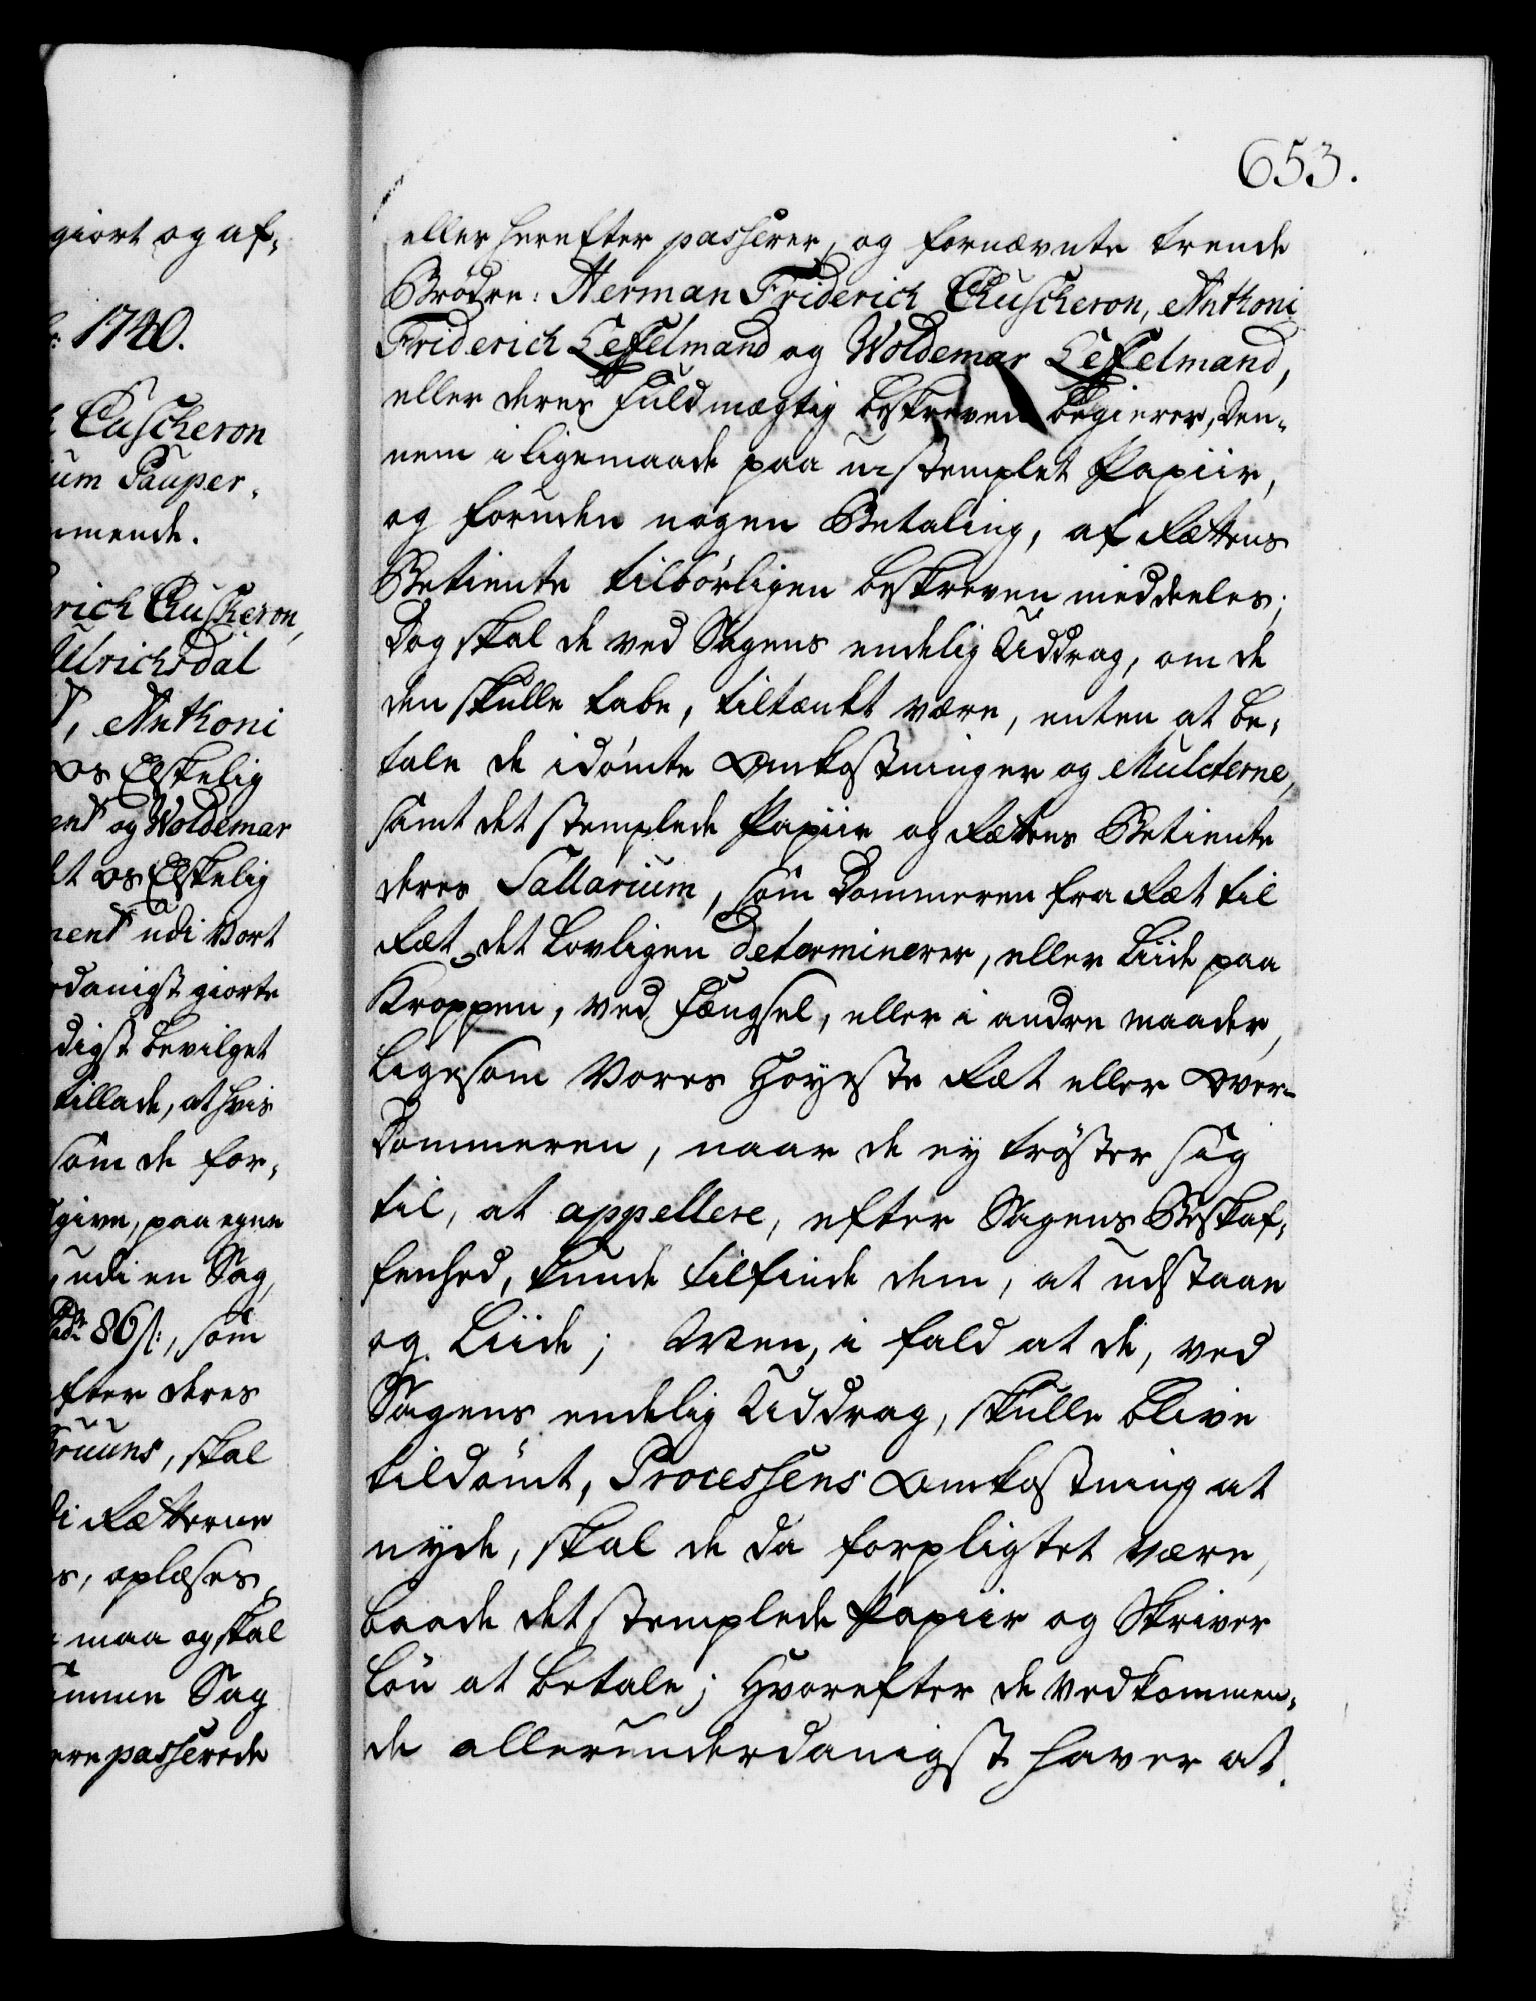 giort og af-
1740.
Cuscheron
um Pauper-
mende.
rich Cuscheron,
Ulrichsdal
Anthoni
os Elskelig
og Woldemar
os Elskelig
udi Vort
danigst giorte
digst bevilget
tillade, at hvis
som de for-
give, paa egne
udi en Sag
86 s:, som
efter deres
skal
i Rætterne
s, oplæses,
maa og skal
Sag
passerede
653.
eller herefter passerer, og fornævnte trende
Brødre: Herman Friderich Cuscheron, Anthoni
Friderich Leffelmand og Woldemar Leffelmand,
eller deres Fuldmægtig beskreven begierer, den-
nem i ligemaade paa u-stemplet Papiir,
og foruden nogen Betaling, af Rættens
Betiente tilbørligen beskreven meddeeles;
Dog skal de ved Sagens endelig Uddrag, om de
den skulle tabe, tiltænkt være, enten at be-
tale de idømte Omkostninger og Mulcterne,
samt det stemplede Papiir og Rættens Betiente
deres Sallarium, som Dommeren fra Ræt til
Ræt det Lovligen determinerer, eller Liide paa
Kroppen, ved Fængsel, eller i andre maader,
ligesom Vores Høyeste Ræt eller Over-
Dommeren, naar de ey trøster sig
til, at appellere, efter Sagens Beskaf-
fenhed, kunde tilfinde dem, at udstaae
og Liide; Men, i fald at de, ved
Sagens endelig Uddrag, skulle blive
tildømt, Processens Omkostning at
nyde, skal de da forpligtet være,
baade det stemplede Papiir og Skriver
Løn at betale; Hvorefter de vedkommen-
de allerunderdanigst haver at